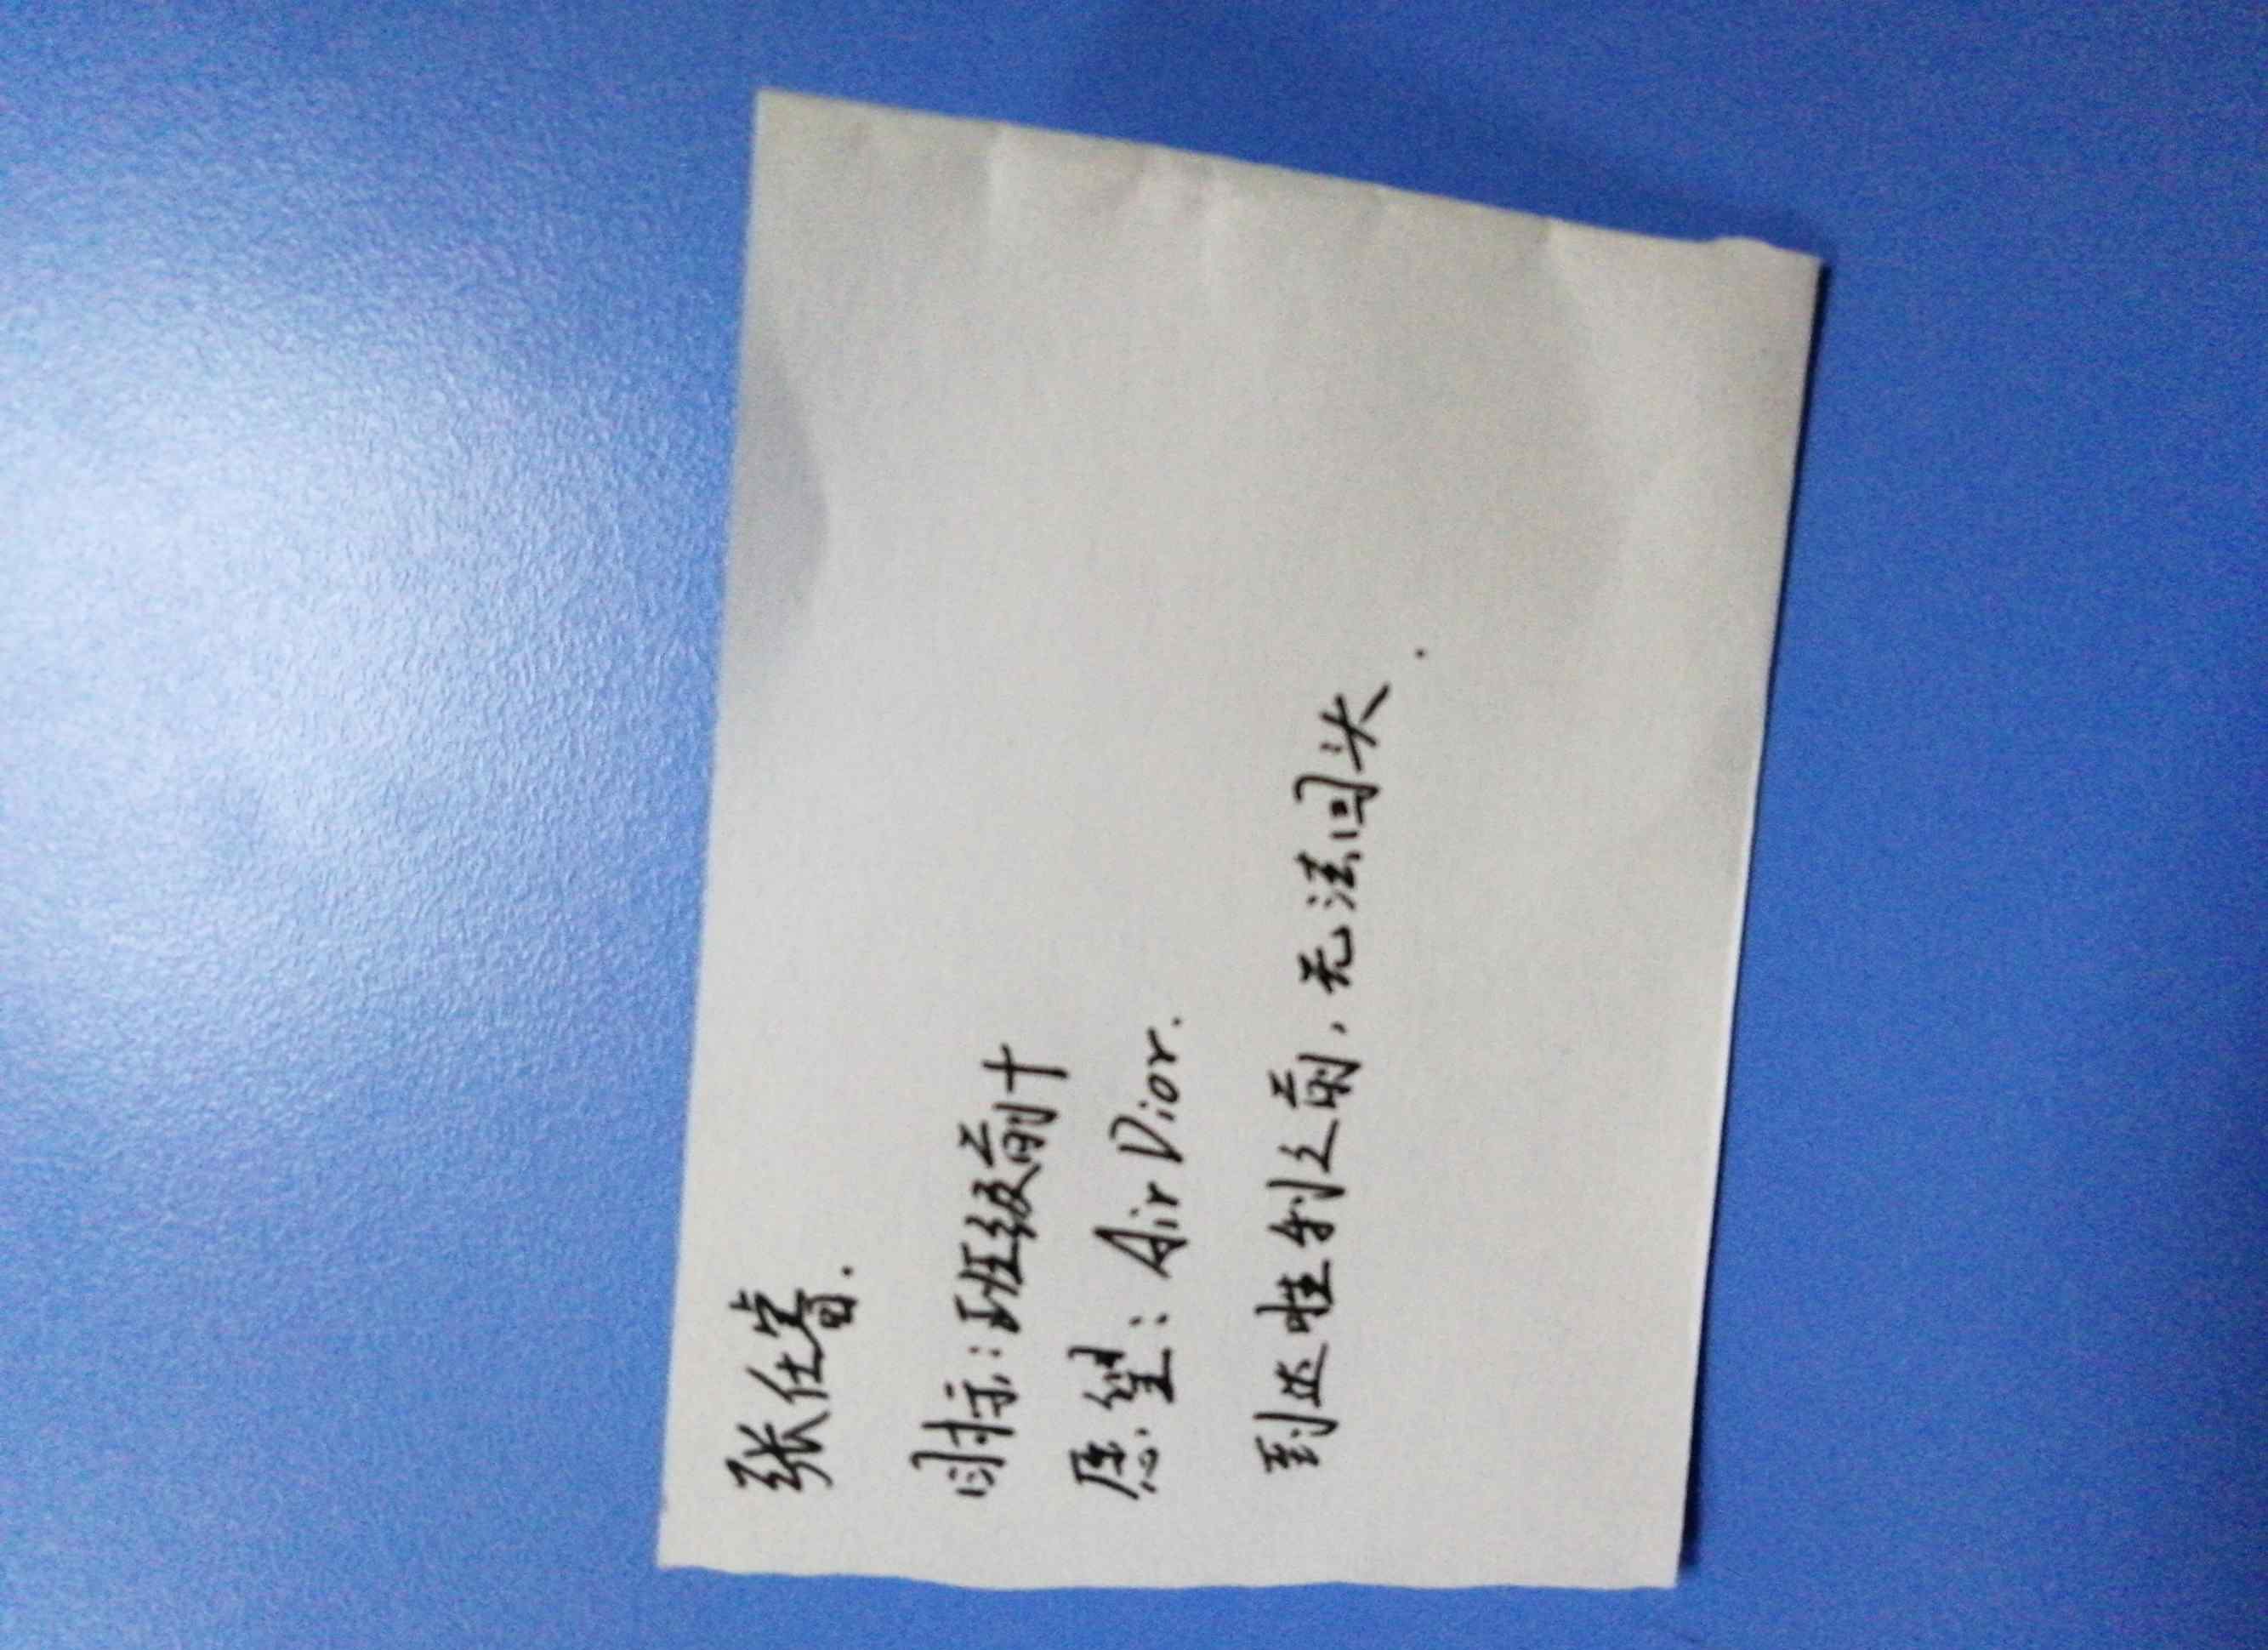 张仕睿.
目标:班级前十
愿望:Air Dior.
到达胜利之前,无法回头.